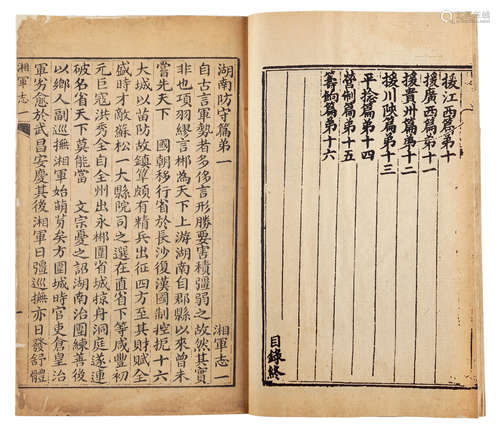 援江西篇第十
援廣西篇第十一
援貴州篇第十二
援川陝篇第十三
平捻篇第十四
營制篇第十五
籌餉篇第十六
目錄終
湖南防守篇第一 湘軍志一
自古言軍勢者多侈言形勝要害積彊弱之故然其實
非也項羽繆言郴為天下上游湖南自郡縣以來曾未
當先天下 國朝移行省於長沙復漢國制控扼十六
大城以苗防故鎮筸頗有精兵出征四方至其財賦全
盛時才敵蘇松一大縣院司之選在直省下等咸豐初
元巨寇洪秀全自全州出永郴圍省城掠舟洞庭遂連
破名省天下莫能當 文宗憂之詔湖南治團練善後
以鄉人副巡撫湘軍始萌芽矣方圍城時官吏倉皇治
軍劣愈於武昌安慶其後湘軍日彊巡撫亦日發舒體
湘軍志一